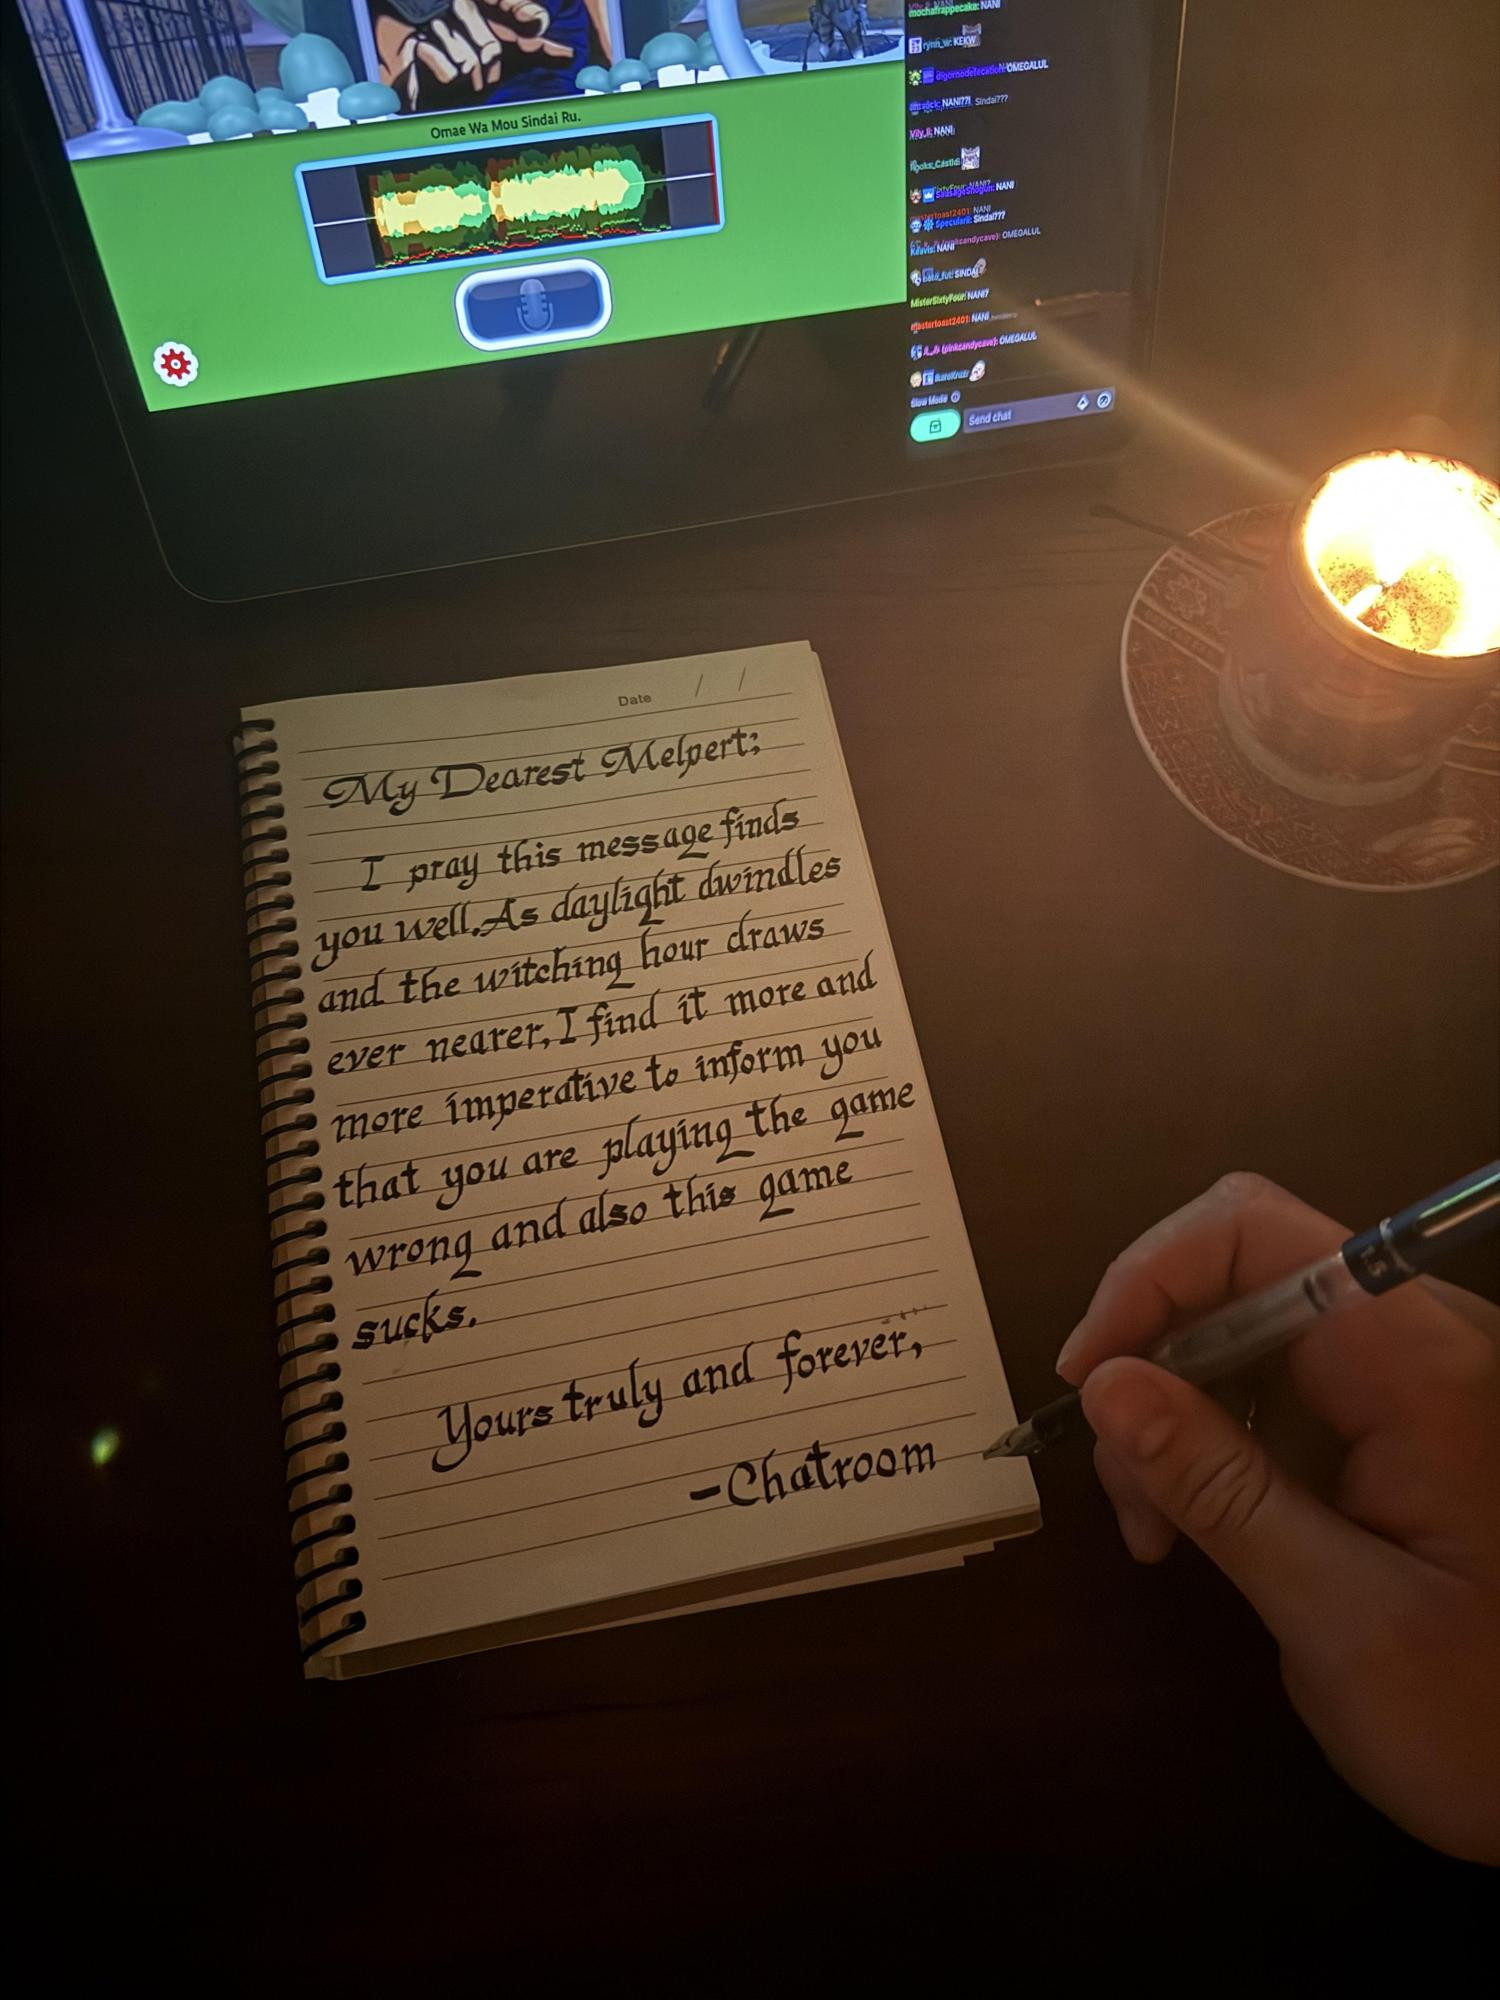 mochafrappecake: NANI
rynn_w: KEKW
OMEGALUL
NANI??! Sindai???
Vily_li: NANI
SausageShogun: NANI
mastertoast2401: NANI
Specularii: Sindai???
(pinkcandycave): OMEGALUL
Keavis: NANI
SINDAI
MisterSixtyFour: NANI?
mastertoast2401: NANI
(pinkcandycave): OMEGALUL
Slow Mode
Send chat
Omae Wa Mou Sindai Ru.
Date / /
My Dearest Melpert;
I pray this message finds
you well. As daylight dwindles
and the witching hour draws
ever nearer, I find it more and
more imperative to inform you
that you are playing the game
wrong and also this game
sucks.
Yours truly and forever,
-Chatroom
1.5